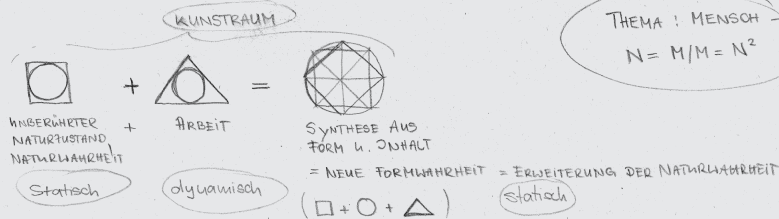 KUNSTRAUM
THEMA : MENSCH -
N = M/M = N²
+
=
UNBERÜHRTER
NATURZUSTAND
NATURWAHRHEIT
+
ARBEIT
SYNTHESE AUS
FORM U. INHALT
= NEUE FORMWAHRHEIT = ERWEITERUNG DER NATURWAHRHEIT
Statisch
dynamisch
statisch
(□ + ○ + △)